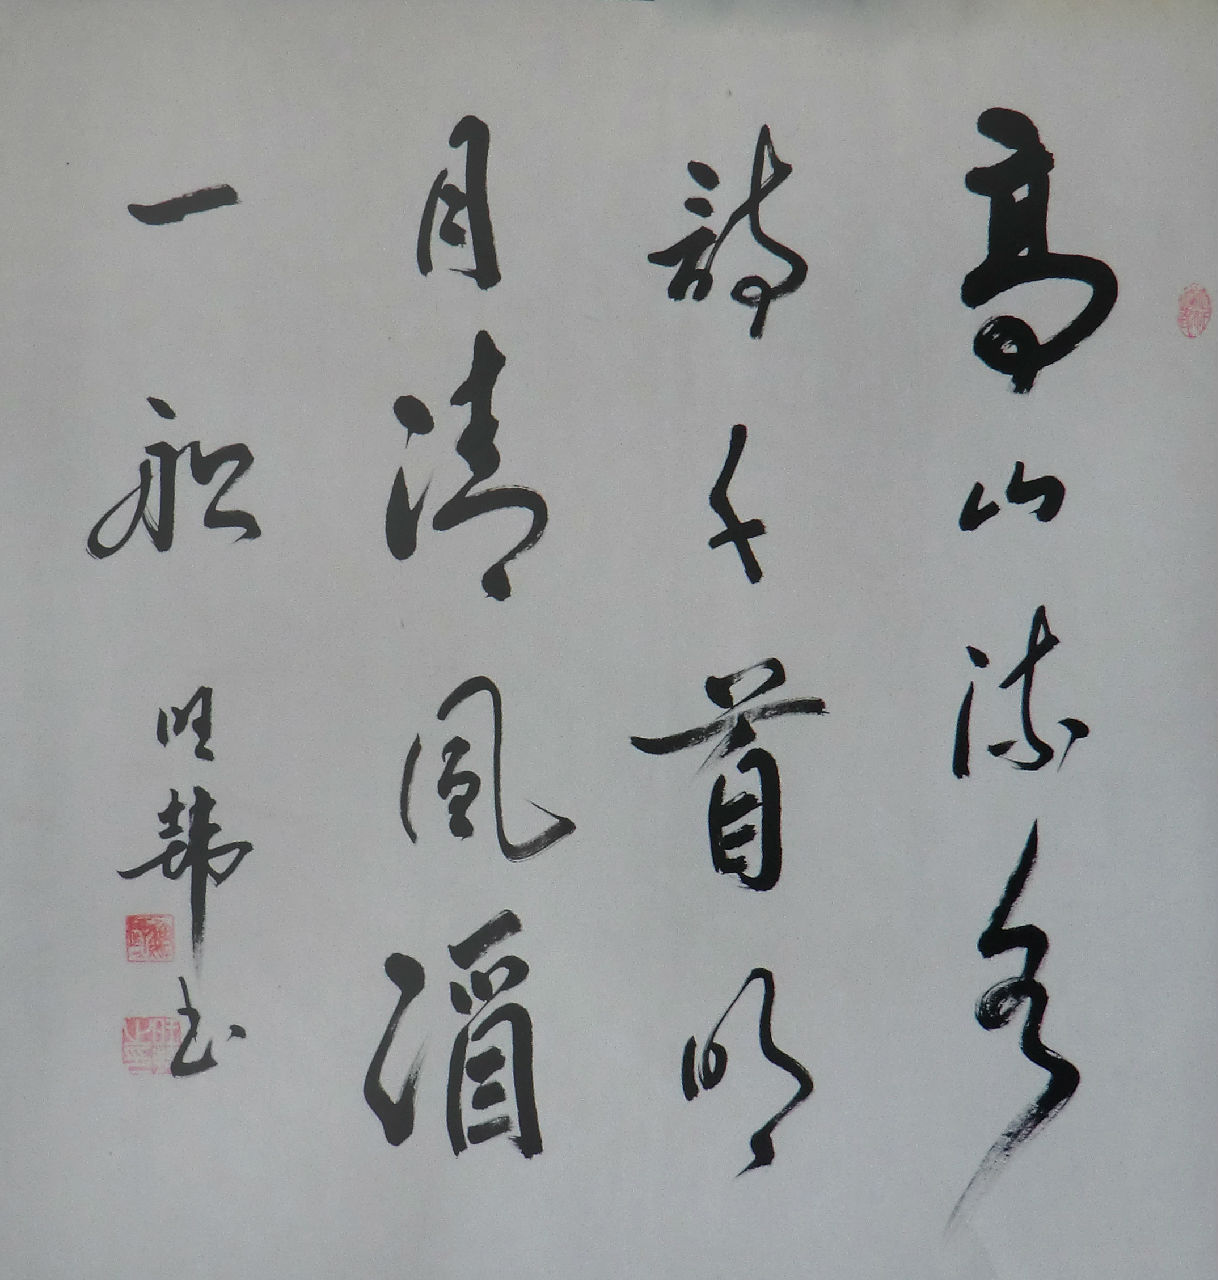 高山流水
詩千首明
月清風酒
一船
书